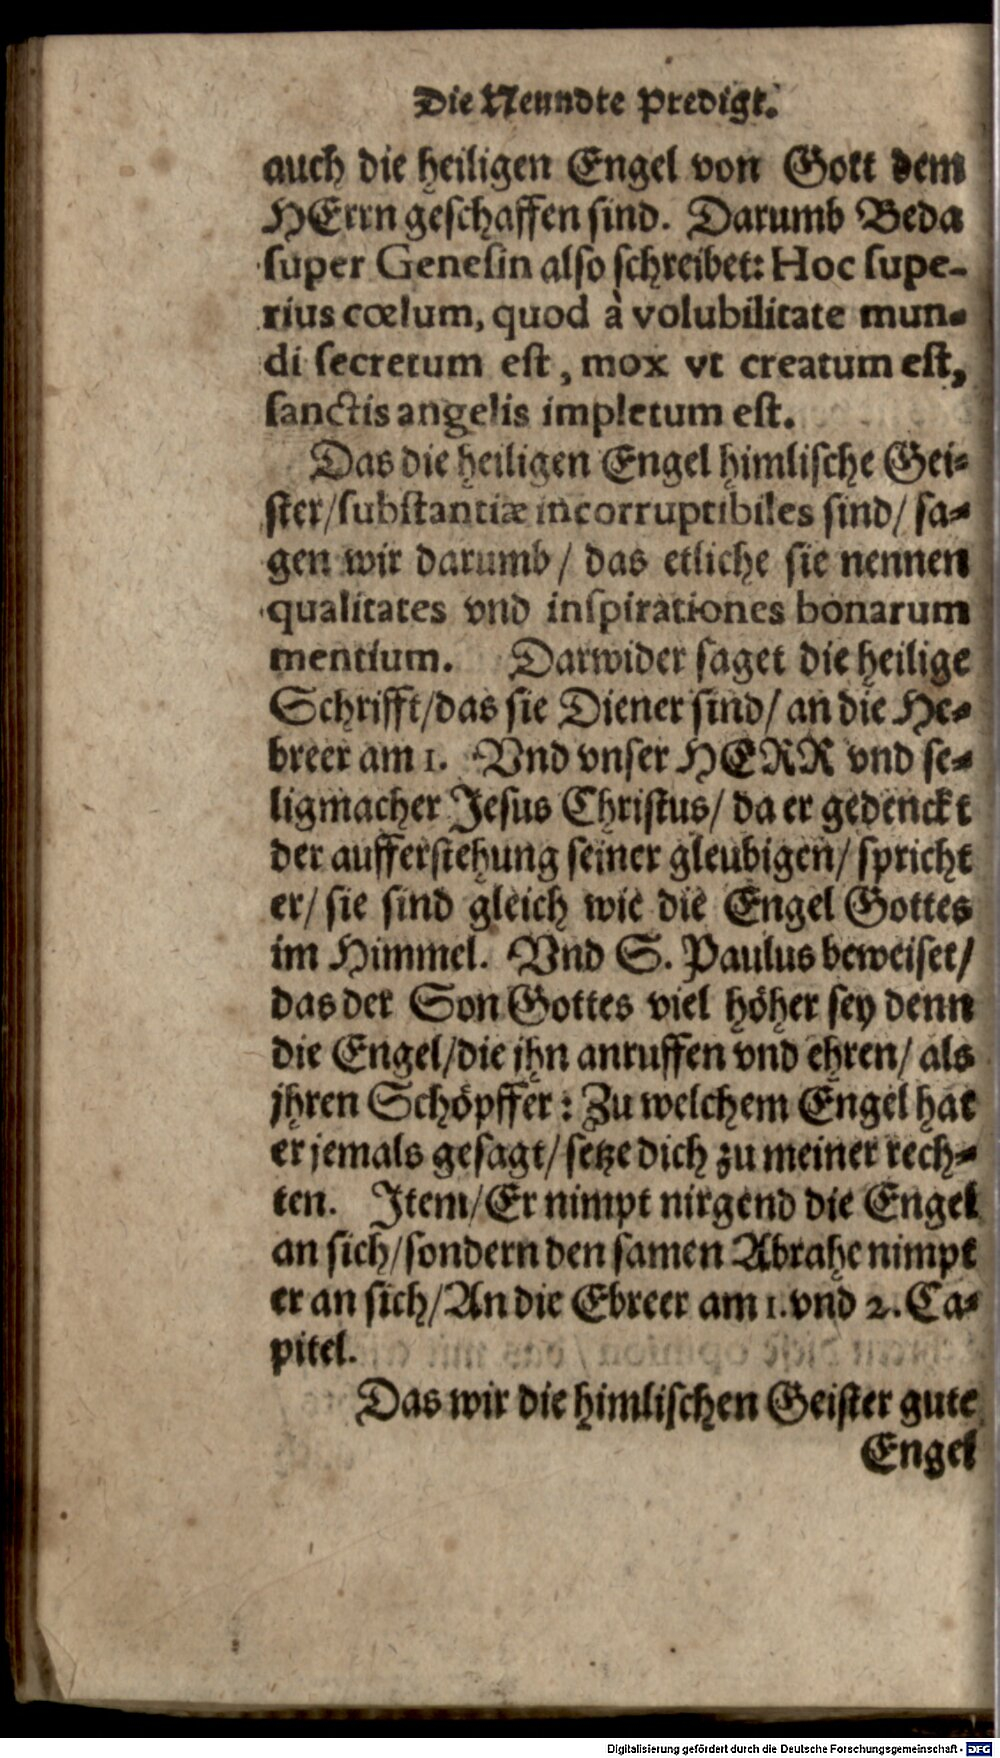 Die Neundte Predigt.
auch die heiligen Engel von Gott dem
HErrn geschaffen sind. Darumb Beda
super Genesin also schreibet: Hoc supe-
rius cœlum, quod à volubilitate mun-
di secretum est, mox vt creatum est,
sanctis angelis impletum est.
Das die heiligen Engel himlische Gei-
ster/substantiæ incorruptibiles sind/ sa-
gen wir darumb/ das etliche sie nennen
qualitates vnd inspirationes bonarum
mentium. Darwider saget die heilige
Schrifft/das sie Diener sind/ an die He-
breer am 1. Vnd vnser HERR vnd se-
ligmacher Jesus Christus/ da er gedenckt
der aufferstehung seiner gleubigen/ spricht
er/ sie sind gleich wie die Engel Gottes
im Himmel. Vnd S. Paulus beweiset/
das der Son Gottes viel höher sey denn
die Engel/die jhn anruffen vnd ehren/ als
jhren Schöpffer: Zu welchem Engel hat
er jemals gesagt/ setze dich zu meiner rech-
ten. Item/Er nimpt nirgend die Engel
an sich/sondern den samen Abrahe nimpt
er an sich/An die Ebreer am 1. vnd 2. Ca-
pitel.
Das wir die himlischen Geister gute
Engel
Digitalisierung gefördert durch die Deutsche Forschungsgemeinschaft - DFG